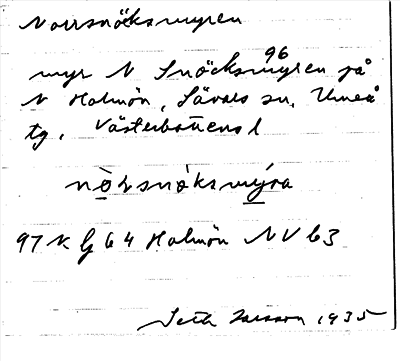 Norrsnöksmyren
96
myr N Snöcksmyren på
N Holmön, Sävars sn, Umeå
tg, Västerbottens l
nòrsnóksmýra
97 N b 64 Holmön NV b3
Seth Larsson 1935